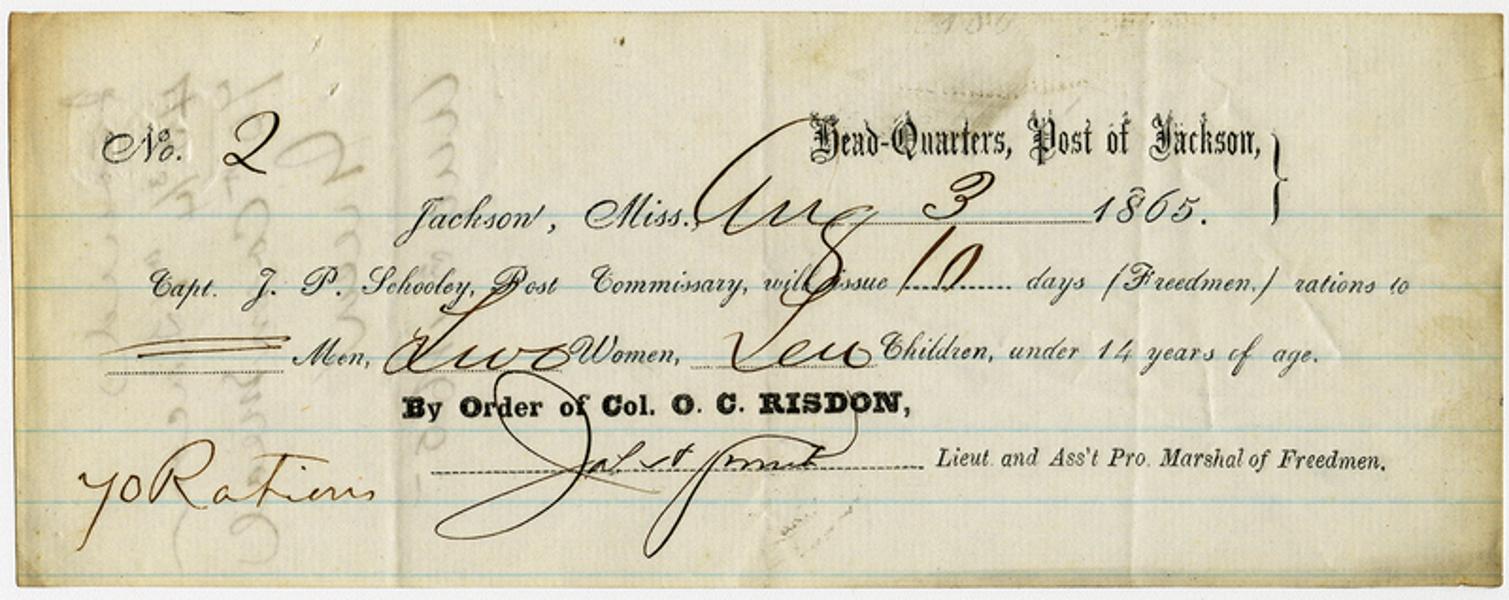 No. 2
Head-Quarters, Post of Jackson,
Jackson, Miss., Aug 3 1865.
Capt. J. P. Schooley, Post Commissary, will issue 10 days (Freedmen.) rations to
Men, Two Women, Ten Children, under 14 years of age.
By Order of Col. O. C. RISDON,
Lieut. and Ass't Pro. Marshal of Freedmen.
70 Rations